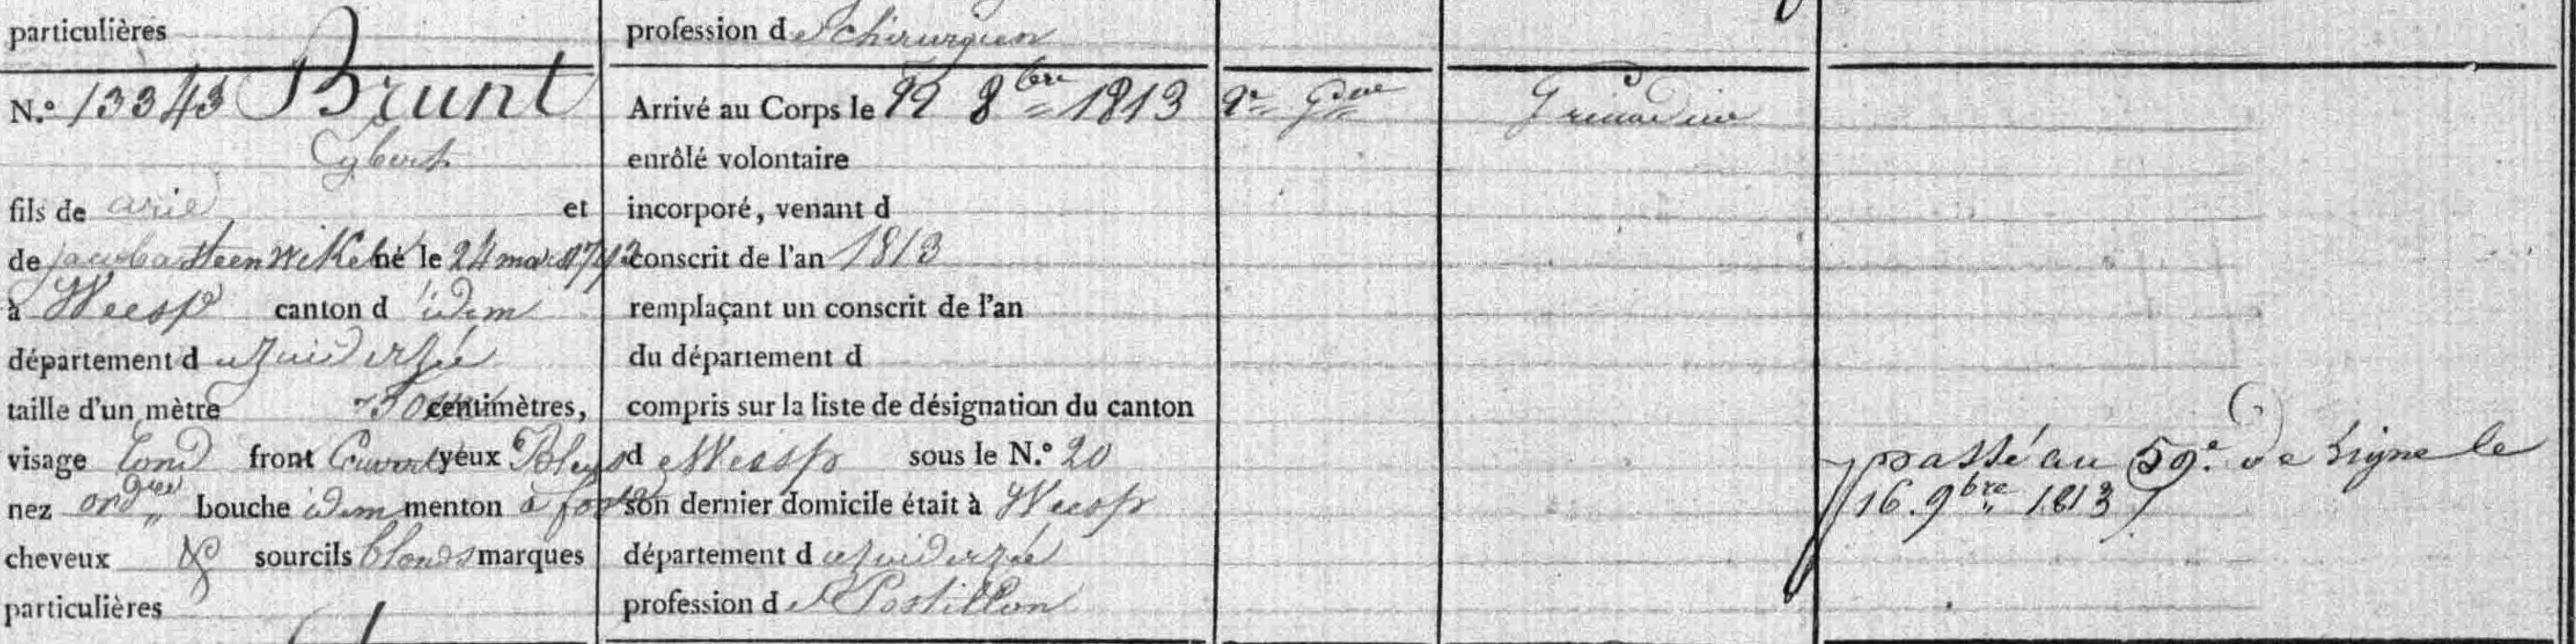 particulières
profession de chirurgien
N.º 13343 Brunt
Egbert
fils de arie et
de jacoba Steenwikel né le 24 mars 1793
à Weesp canton d idem
département du zuiderzée
taille d'un mètre centimètres,
visage rond front Couvert yeux Bleus
nez ordre bouche idem menton à fos
cheveux & sourcils blonds marques
particulières
Arrivé au Corps le 22 8bre 1813
enrôlé volontaire
incorporé, venant d
conscrit de l'an 1813
remplaçant un conscrit de l'an
du département d
compris sur la liste de désignation du canton
de Weesp sous le N.º 20
son dernier domicile était à Weesp
département du zuiderzée
profession de Postillon
2e
passé au 59e. de Ligne le
16. 9bre 1813